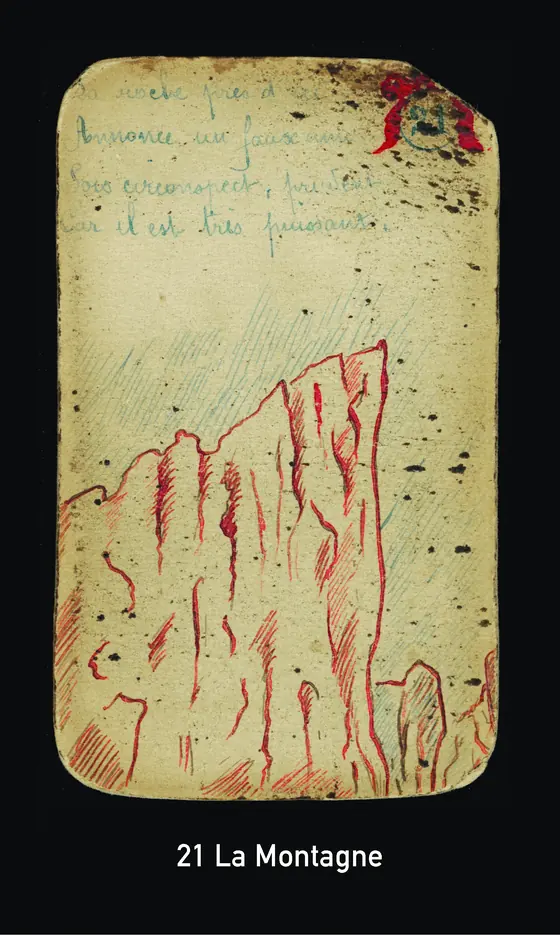 La roche près d'ici
Annonce un faux ami
Sois circonspect, prudent
Car il est très puissant.
21
21 La Montagne